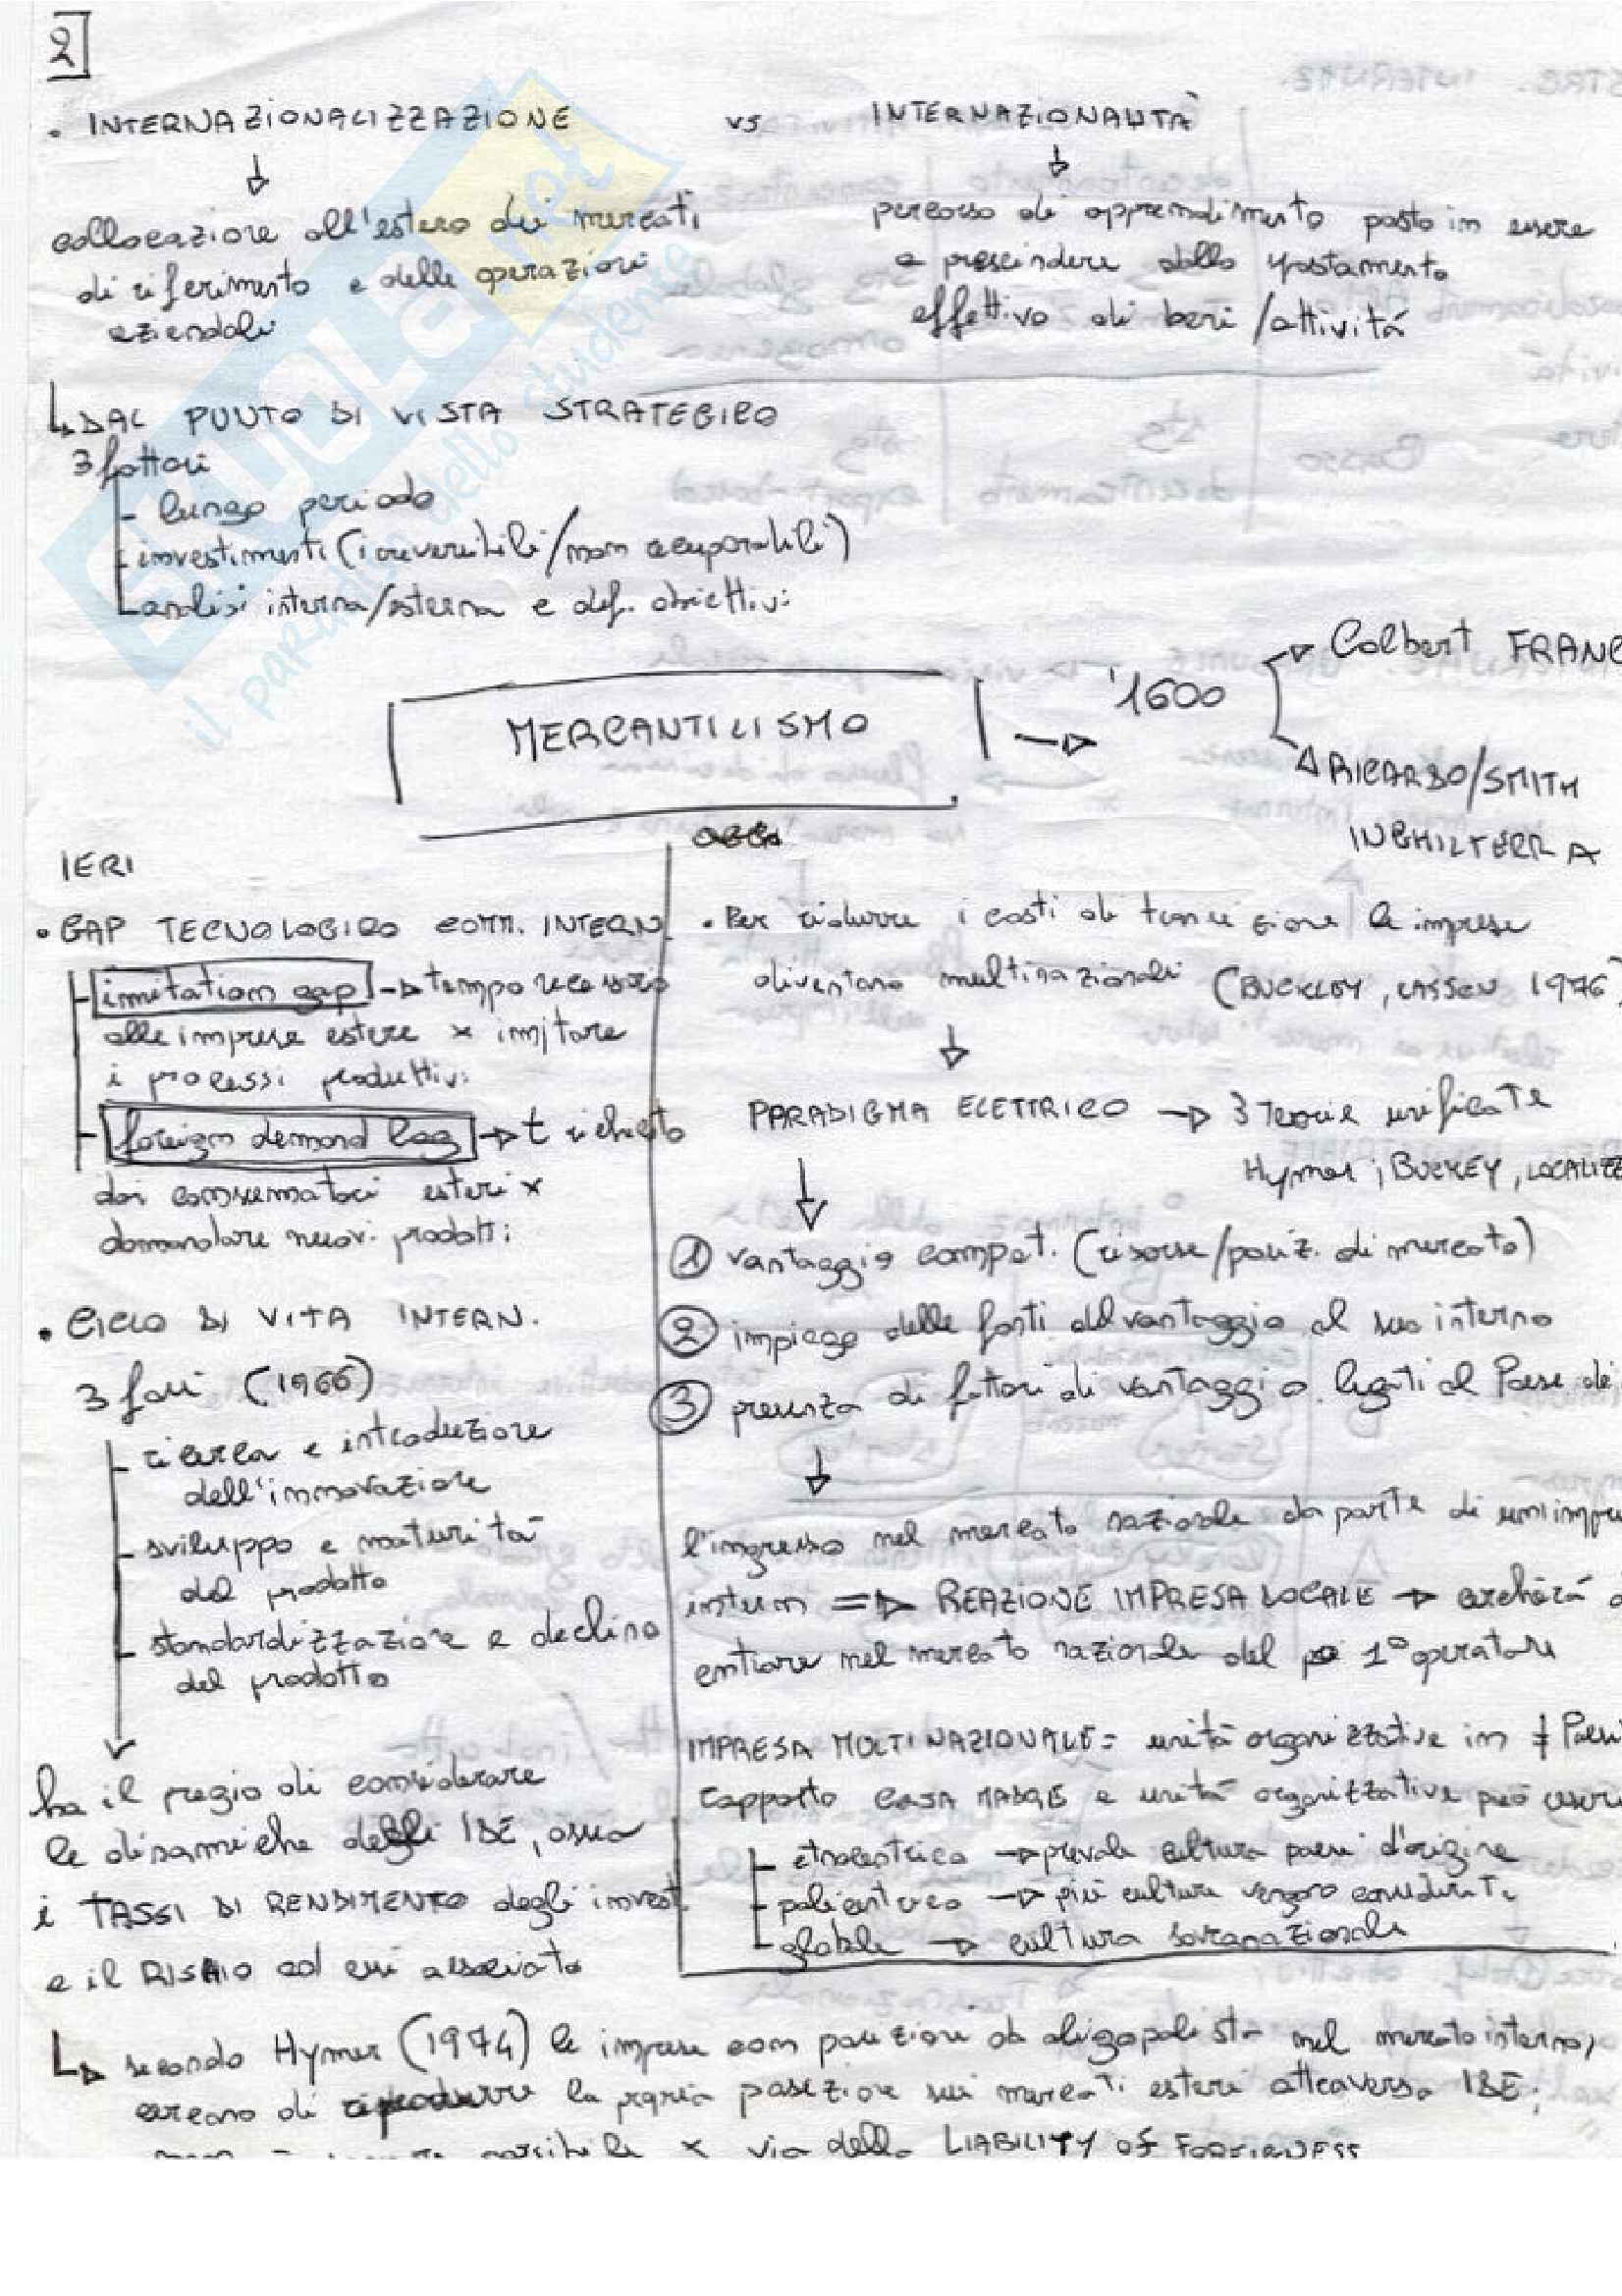 2
. INTERNAZIONALIZZAZIONE vs INTERNAZIONALITÀ
collocazione all'estero dei mercati
di riferimento e delle operazioni
aziendali
percorso di apprendimento posto in essere
a prescindere dallo spostamento
effettivo di beni/attività
DAL PUNTO DI VISTA STRATEGICO
3 fattori
- lungo periodo
- investimenti (irreversibili/non recuperabili)
- analisi interna/esterna e def. obiettivi
MERCANTILISMO → '1600
Colbert FRANC
RICARDO/SMITH
INGHILTERRA
IERI
. GAP TECNOLOGICO COMM. INTERN.
imitation gap → tempo necessario
alle imprese estere x imitare
i processi produttivi
foreign demand lag → t richiesto
dai consumatori esteri x
domandare nuovi prodotti
. CICLO DI VITA INTERN.
3 fasi (1966)
- ricerca e introduzione
dell'innovazione
- sviluppo e maturità
del prodotto
- standardizzazione e declino
del prodotto
ha il pregio di considerare
le dinamiche degli IDE, ossia
i TASSI DI RENDIMENTO degli invest.
e il RISCHIO ad essi associato
oggi
. Per ridurre i costi di transizione le imprese
diventano multinazionali (BUCKLEY, CASSON 1976
PARADIGMA ELETTRICO → 3 Teorie unificate
Hymer; BUCKLEY, LOCALIZZ
① vantaggio compet. (risorse/posiz. di mercato)
② impiego delle fonti del vantaggio al suo interno
③ presenza di fattori di vantaggio legati al Paese di
l'ingresso nel mercato nazionale da parte di un'impre
estern => REAZIONE IMPRESA LOCALE → cercherà d
entrare nel mercato nazionale del 1° operatore
IMPRESA MULTINAZIONALE = unità organizzative in ≠ Paesi
rapporto CASA MADRE e unità organizzative può esser
- etnocentrico → prevale cultura paese d'origine
- policentrico → più culture vengono considerate
- globale → cultura sovranazionale
secondo Hymer (1974) le imprese con posizioni di oligopolista nel mercato interno,
cercano di riprodurre la propria posizione sui mercati esteri attraverso IDE;
possibile x via della LIABILITY OF FOREIGNESS
SKUOLA.net
il paradiso dello studente